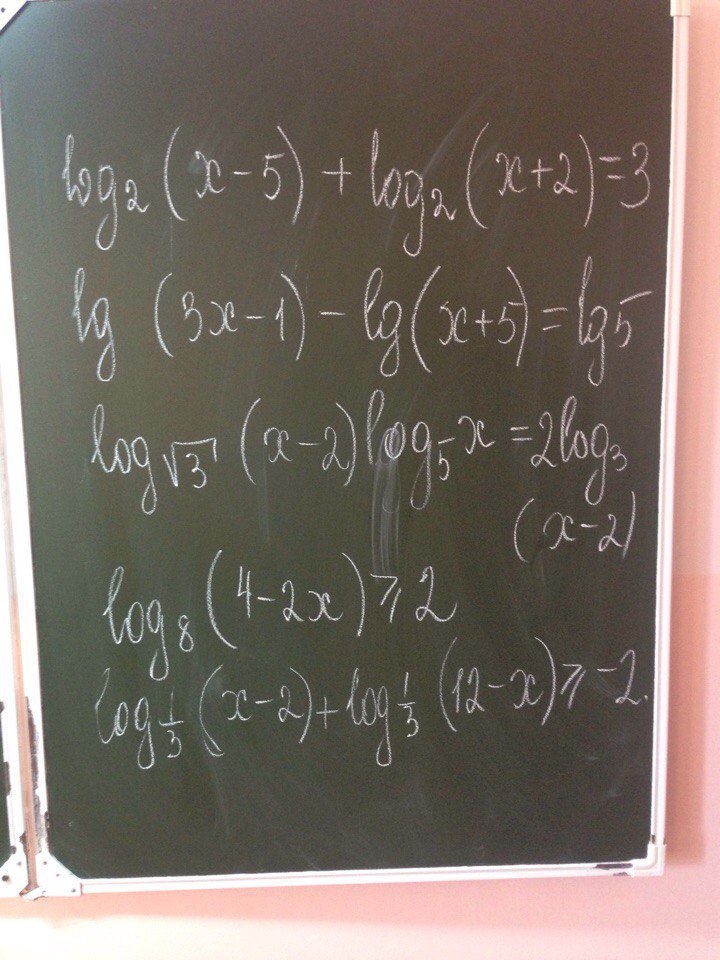 log₂ (x-5) + log₂ (x+2) = 3
lg (3x-1) - lg (x+5) = lg 5
log√3 (x-2) log₅ x = 2log₃
(x-2)
log₈ (4-2x) ⩾ 2
log 1/3 (x-2) + log 1/3 (12-x) ⩾ -2.